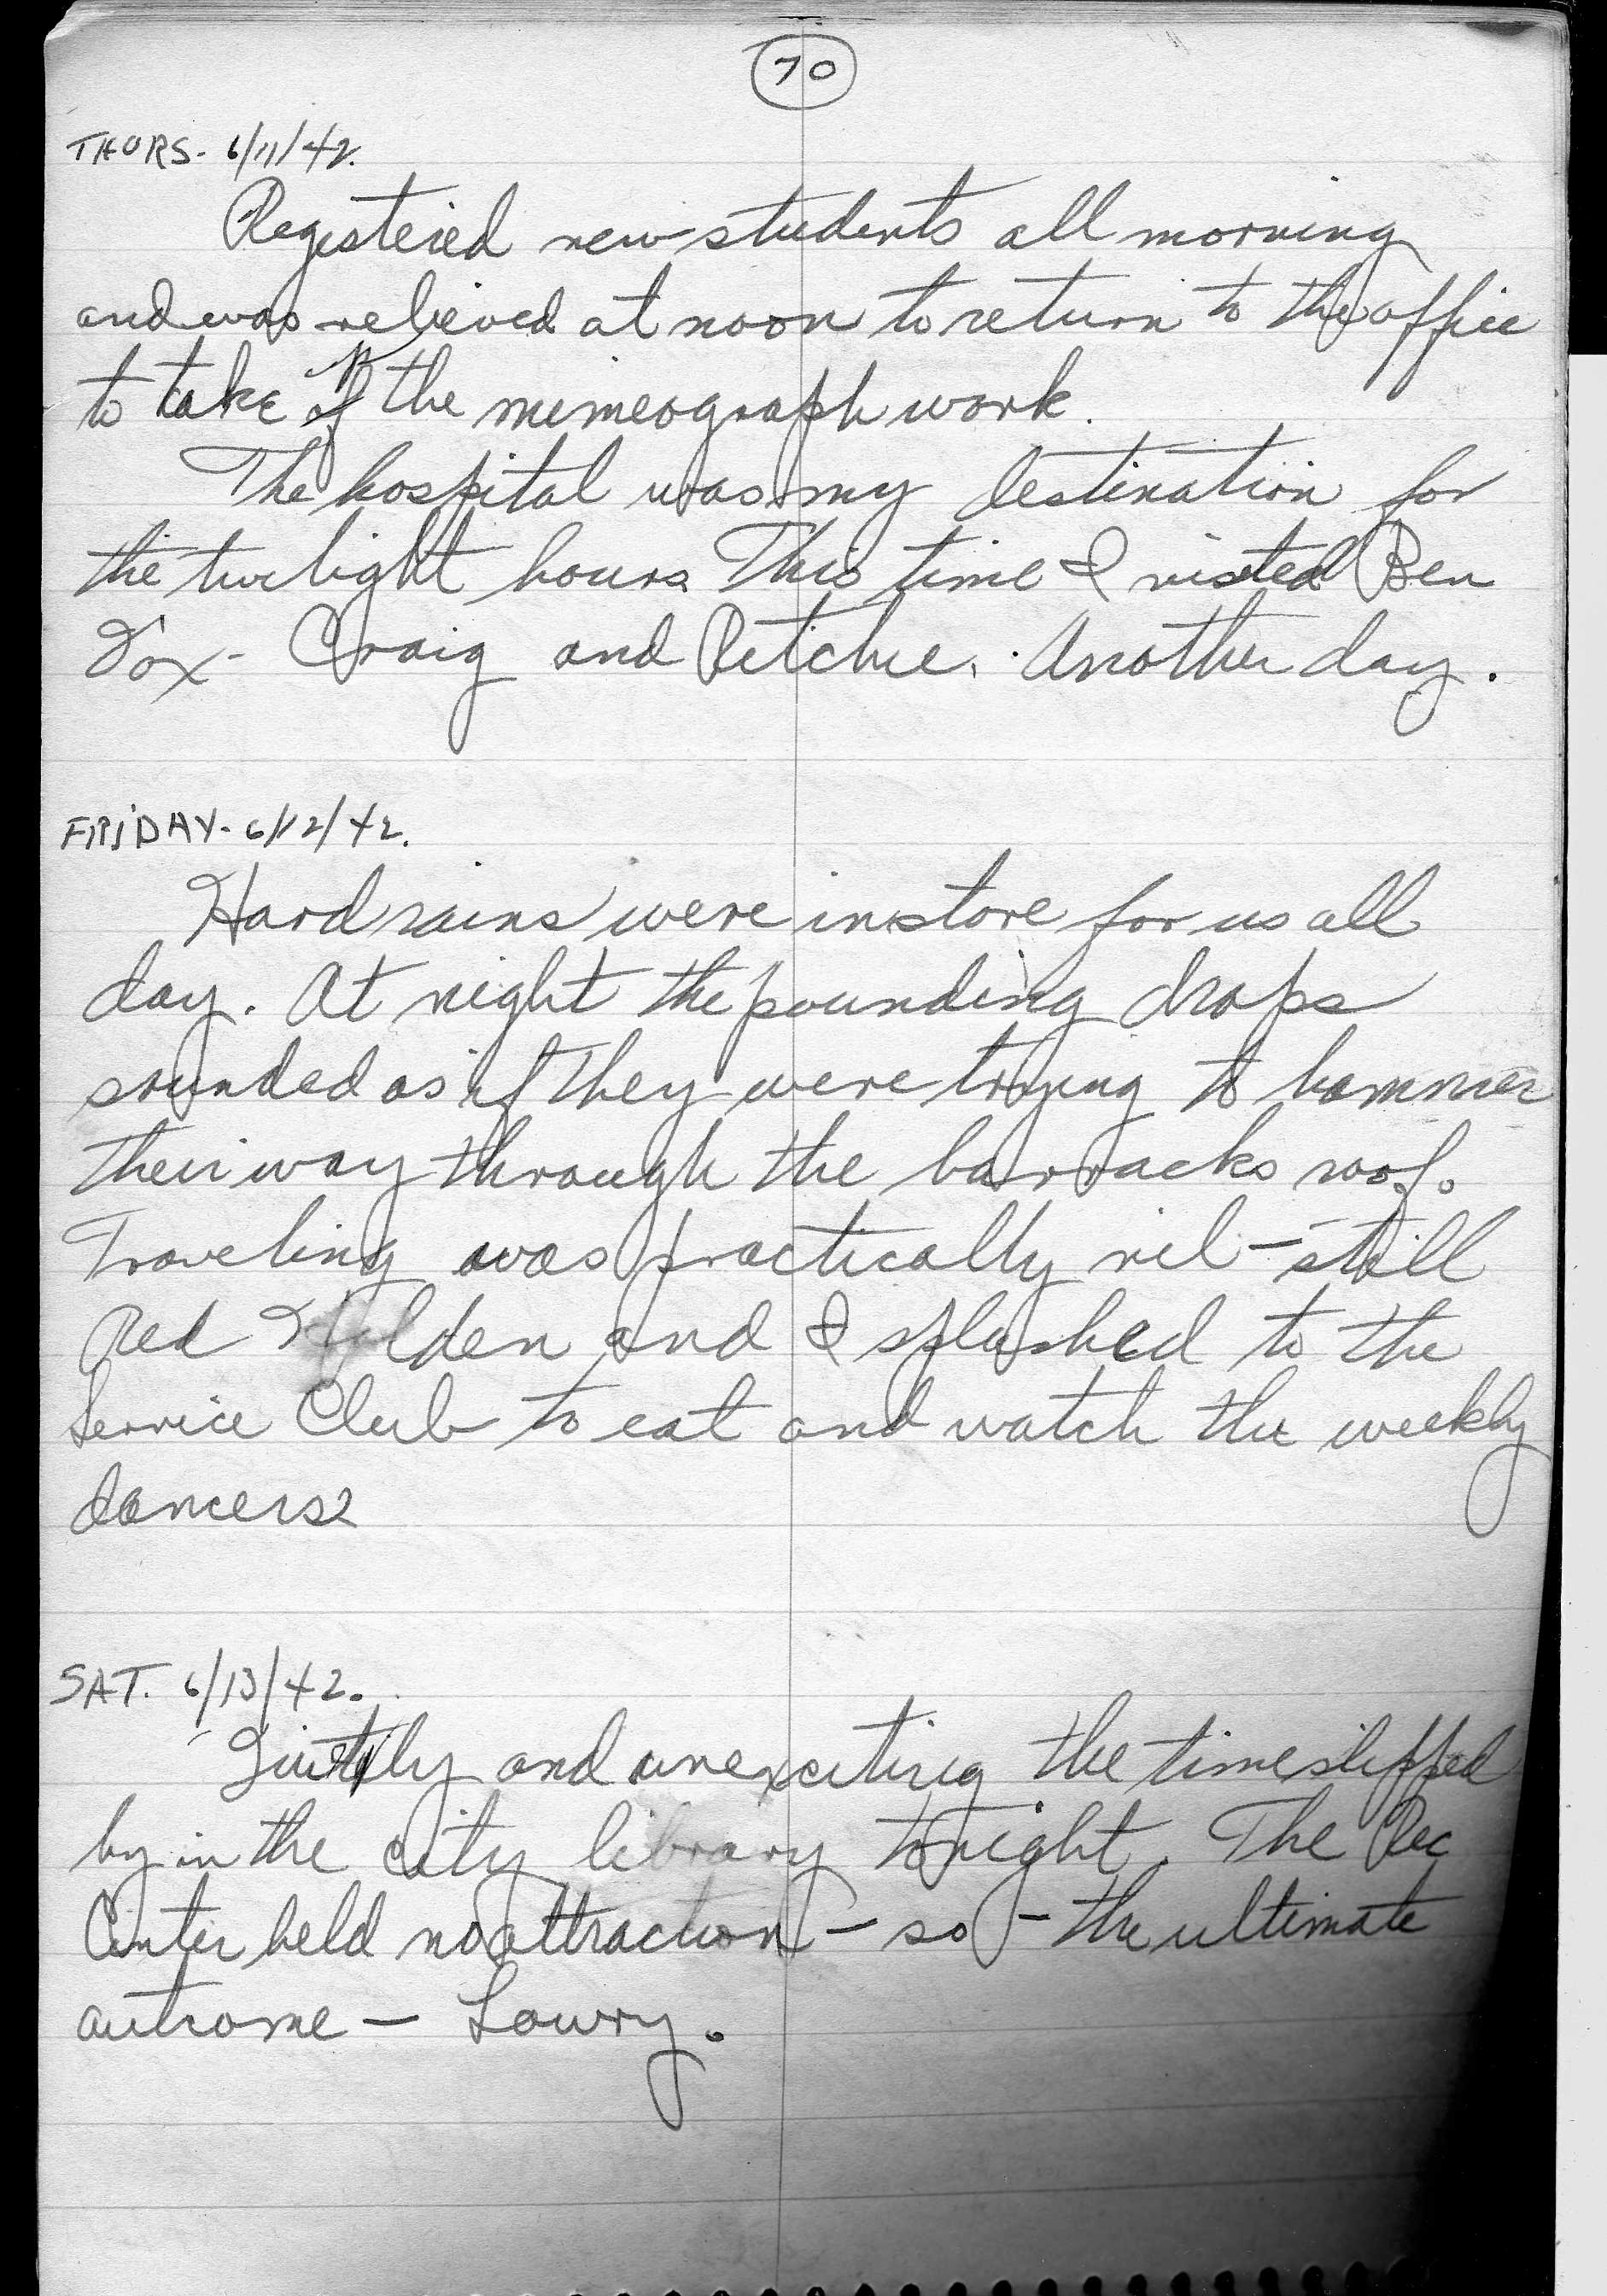 70
THURS- 6/11/42.
Registered new students all morning
and was relieved at noon to return to the office
to take up the mimeograph work.
The hospital was my destination for
the twilight hours. This time I visted Ben
Fox - Craig and Ritchie. Another day.
FRIDAY- 6/12/42.
Hard rains were in store for us all
day. At night the pounding drops
sounded as if they were trying to hammer
their way through the barracks roof.
Traveling was practically nil - still
Red Holden and I splashed to the
Service Club to eat and watch the weekly
dancers.
SAT. 6/13/42.
and unexciting the time slipped
by in the city library tonight. The Rec
Center held no attraction - so - the ultimate
outcome - Lowry.